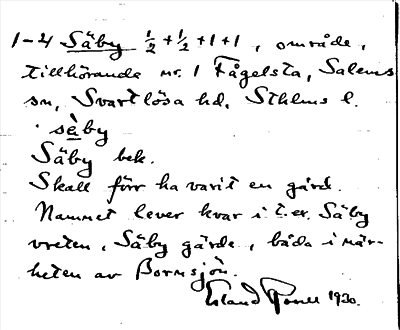 1-4 Säby ½+½+1+1, område,
tillhörande nr. 1 Fågelsta, Salems
sn, Svartlösa hd, Sthlms l.
sὰby
Säby bek.
Skall förr ha varit en gård.
Namnet lever kvar i t.ex. Säby
vreten, Säby gärde, båda i när-
heten av Bornsjön.
Erland 1930.